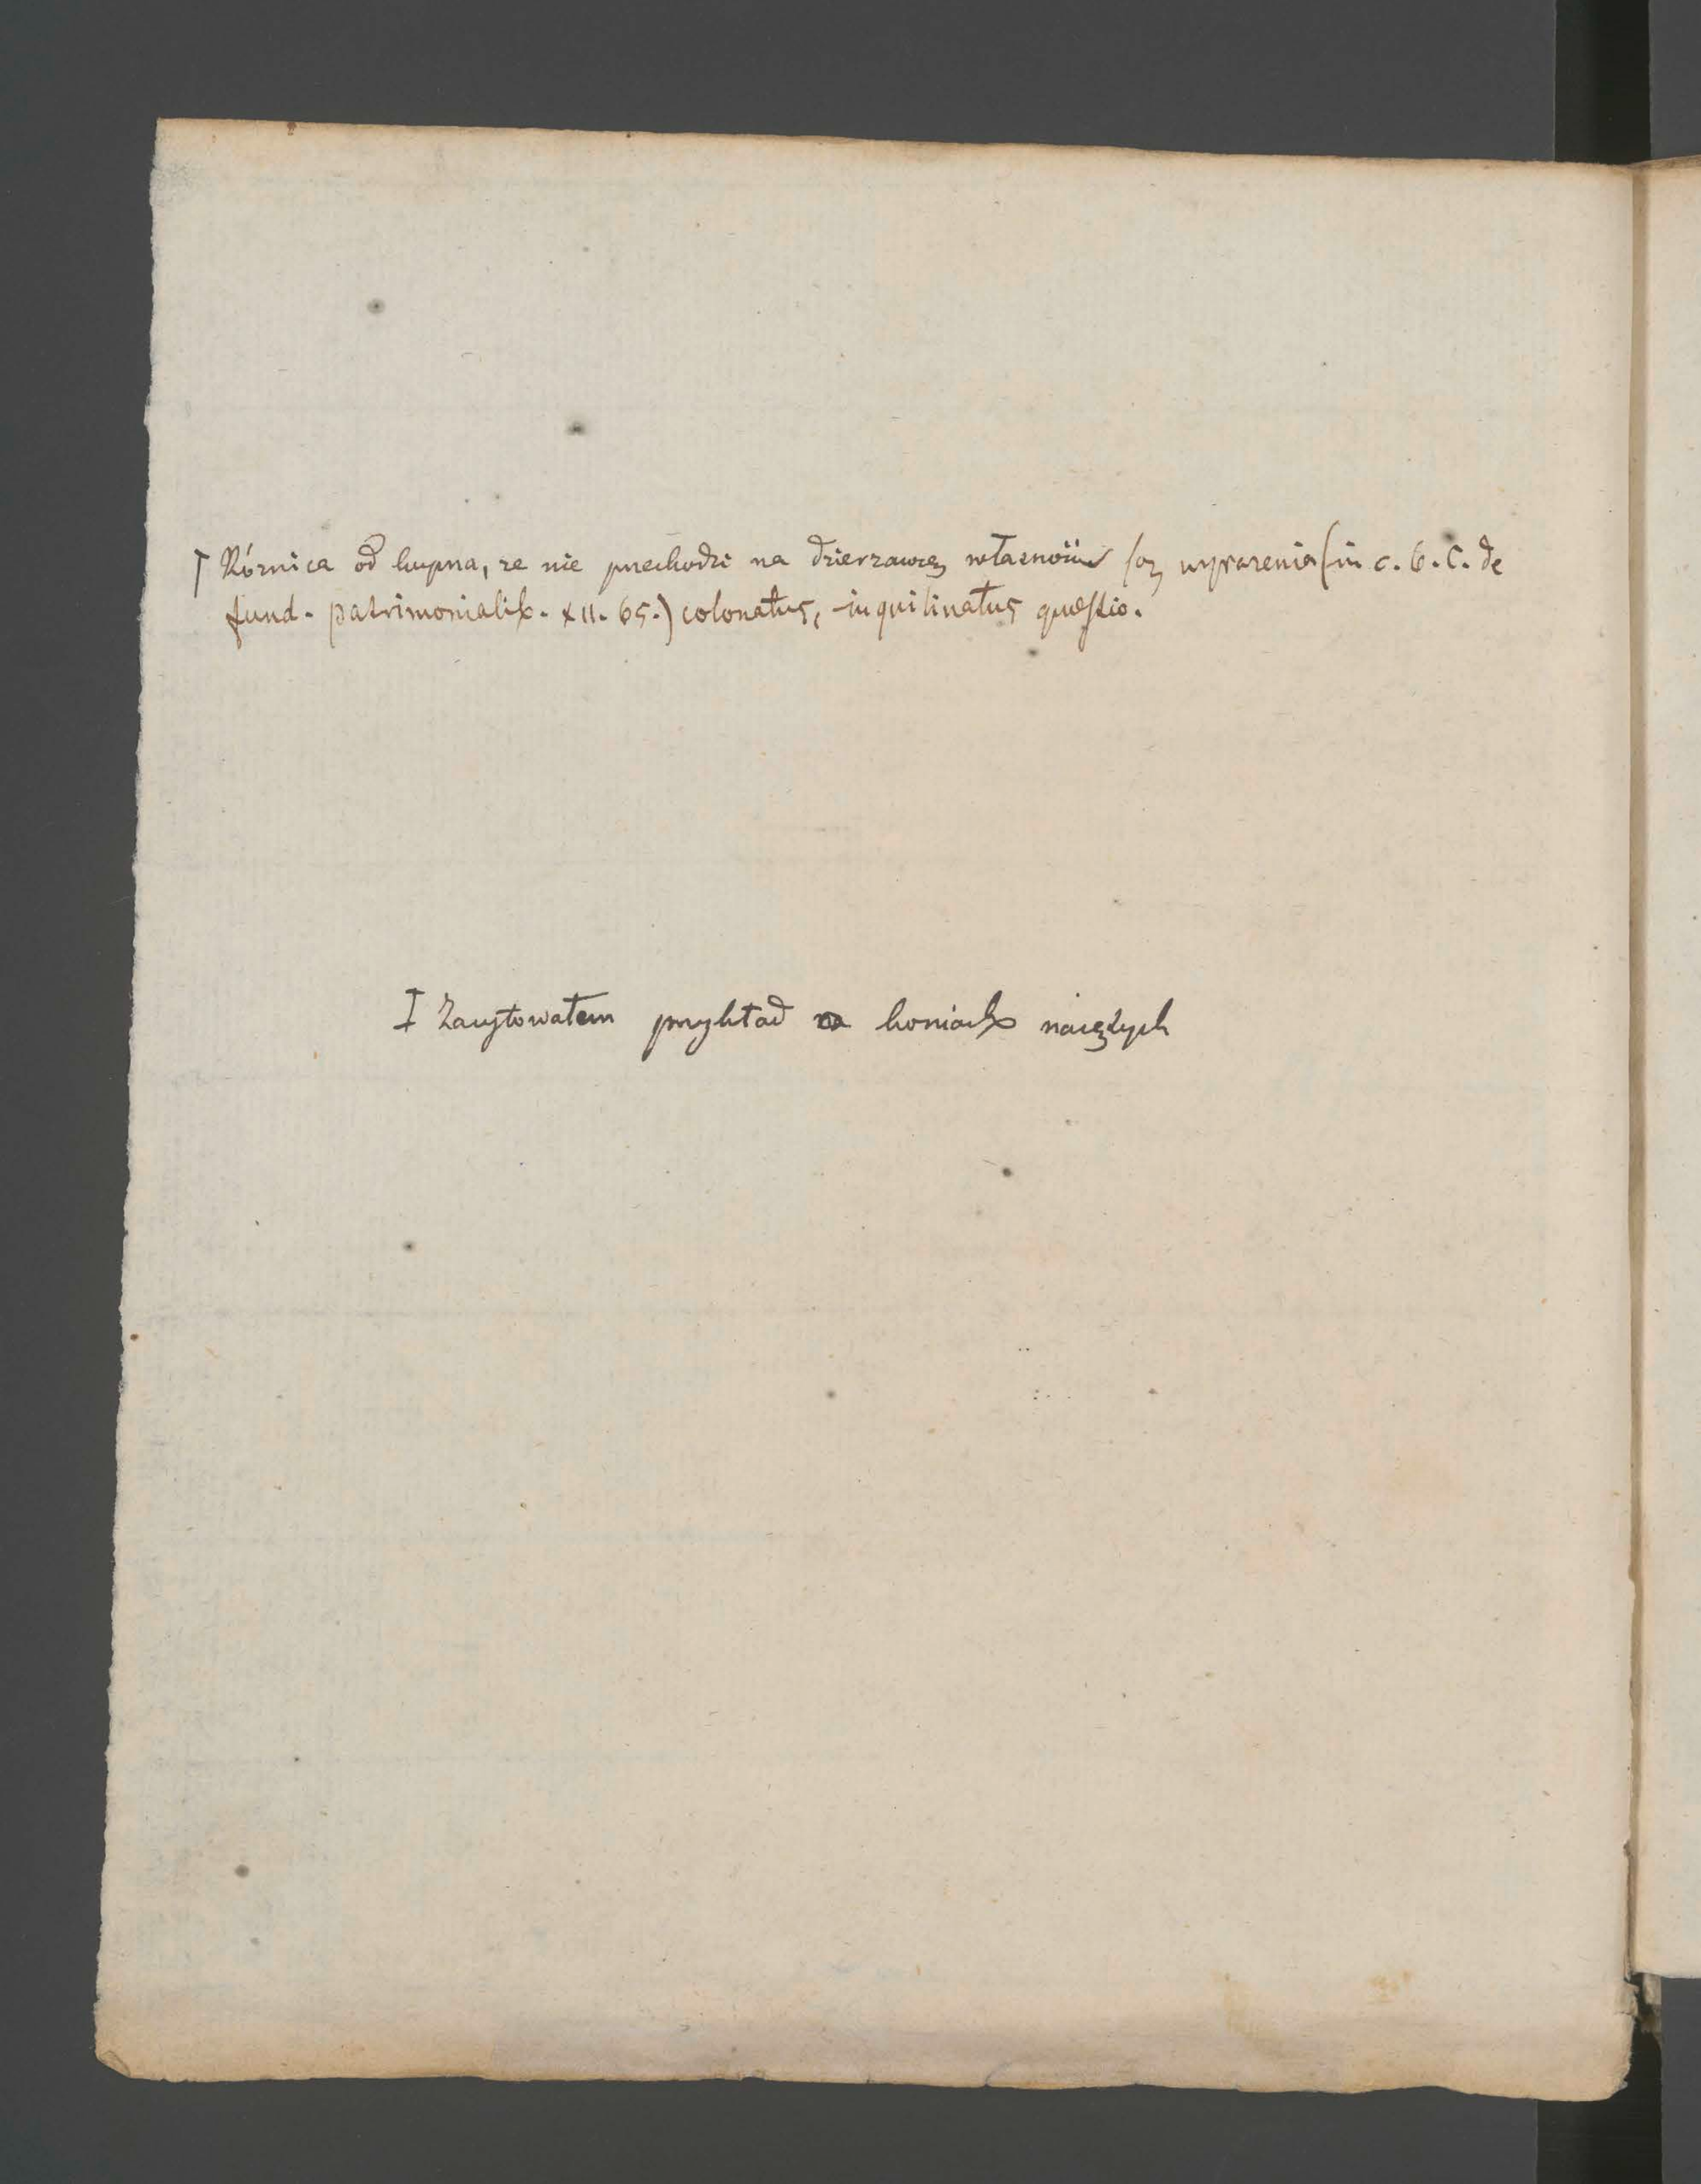 Róznica od kupna, ze nie przechodzi na dzierzawcę własność są wyrazenia (in c. 6. C. de
fund. patrimonialib. XII. 65.) colonatus, inquilinatus quæstio.
Zacytowałem przykład na koniach